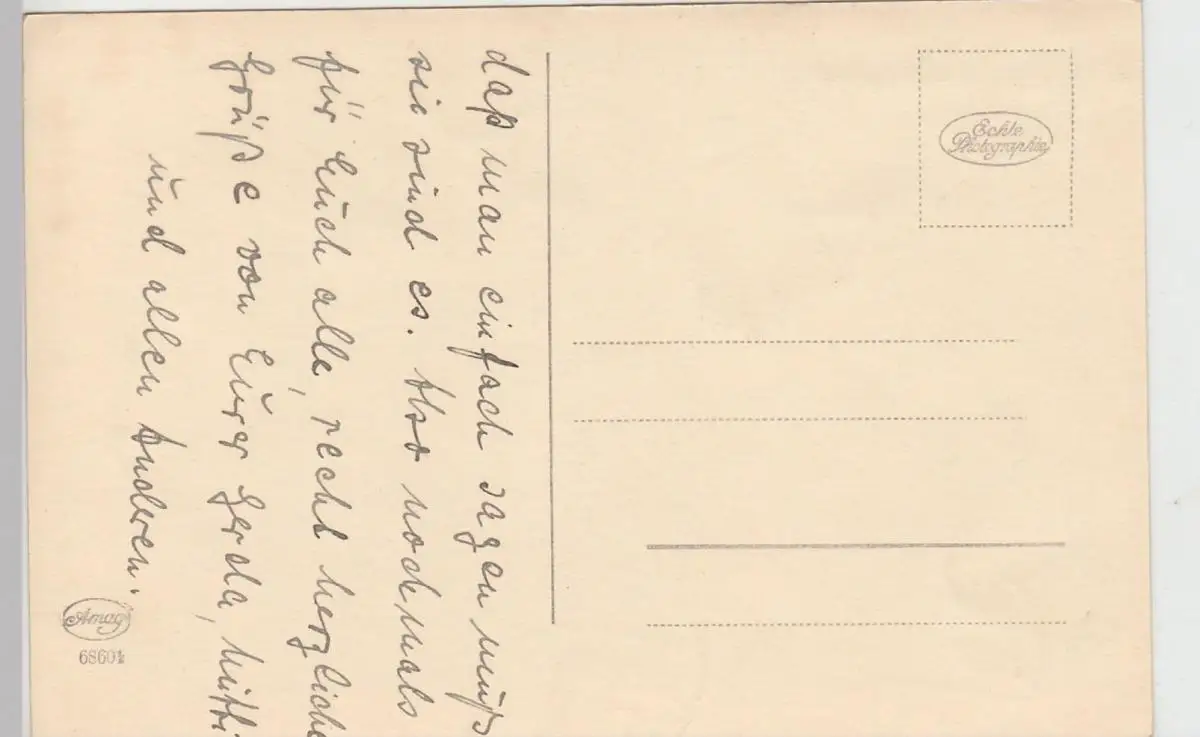 daß man einfach sagen muß
sie sind es. Also nochmals
für Euch alle, recht herzliche
Grüße von Eurer Gerda, Mutti
und allen Anderen.
Echte
Photographie
Amag
68604